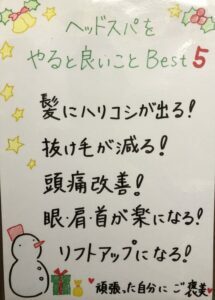 ヘッドスパを
やると良いことBest5
髪にハリコシが出る!
抜け毛が減る!
頭痛改善!
眼・肩・首が楽になる!
リフトアップになる!
♥頑張った自分にご褒美♥